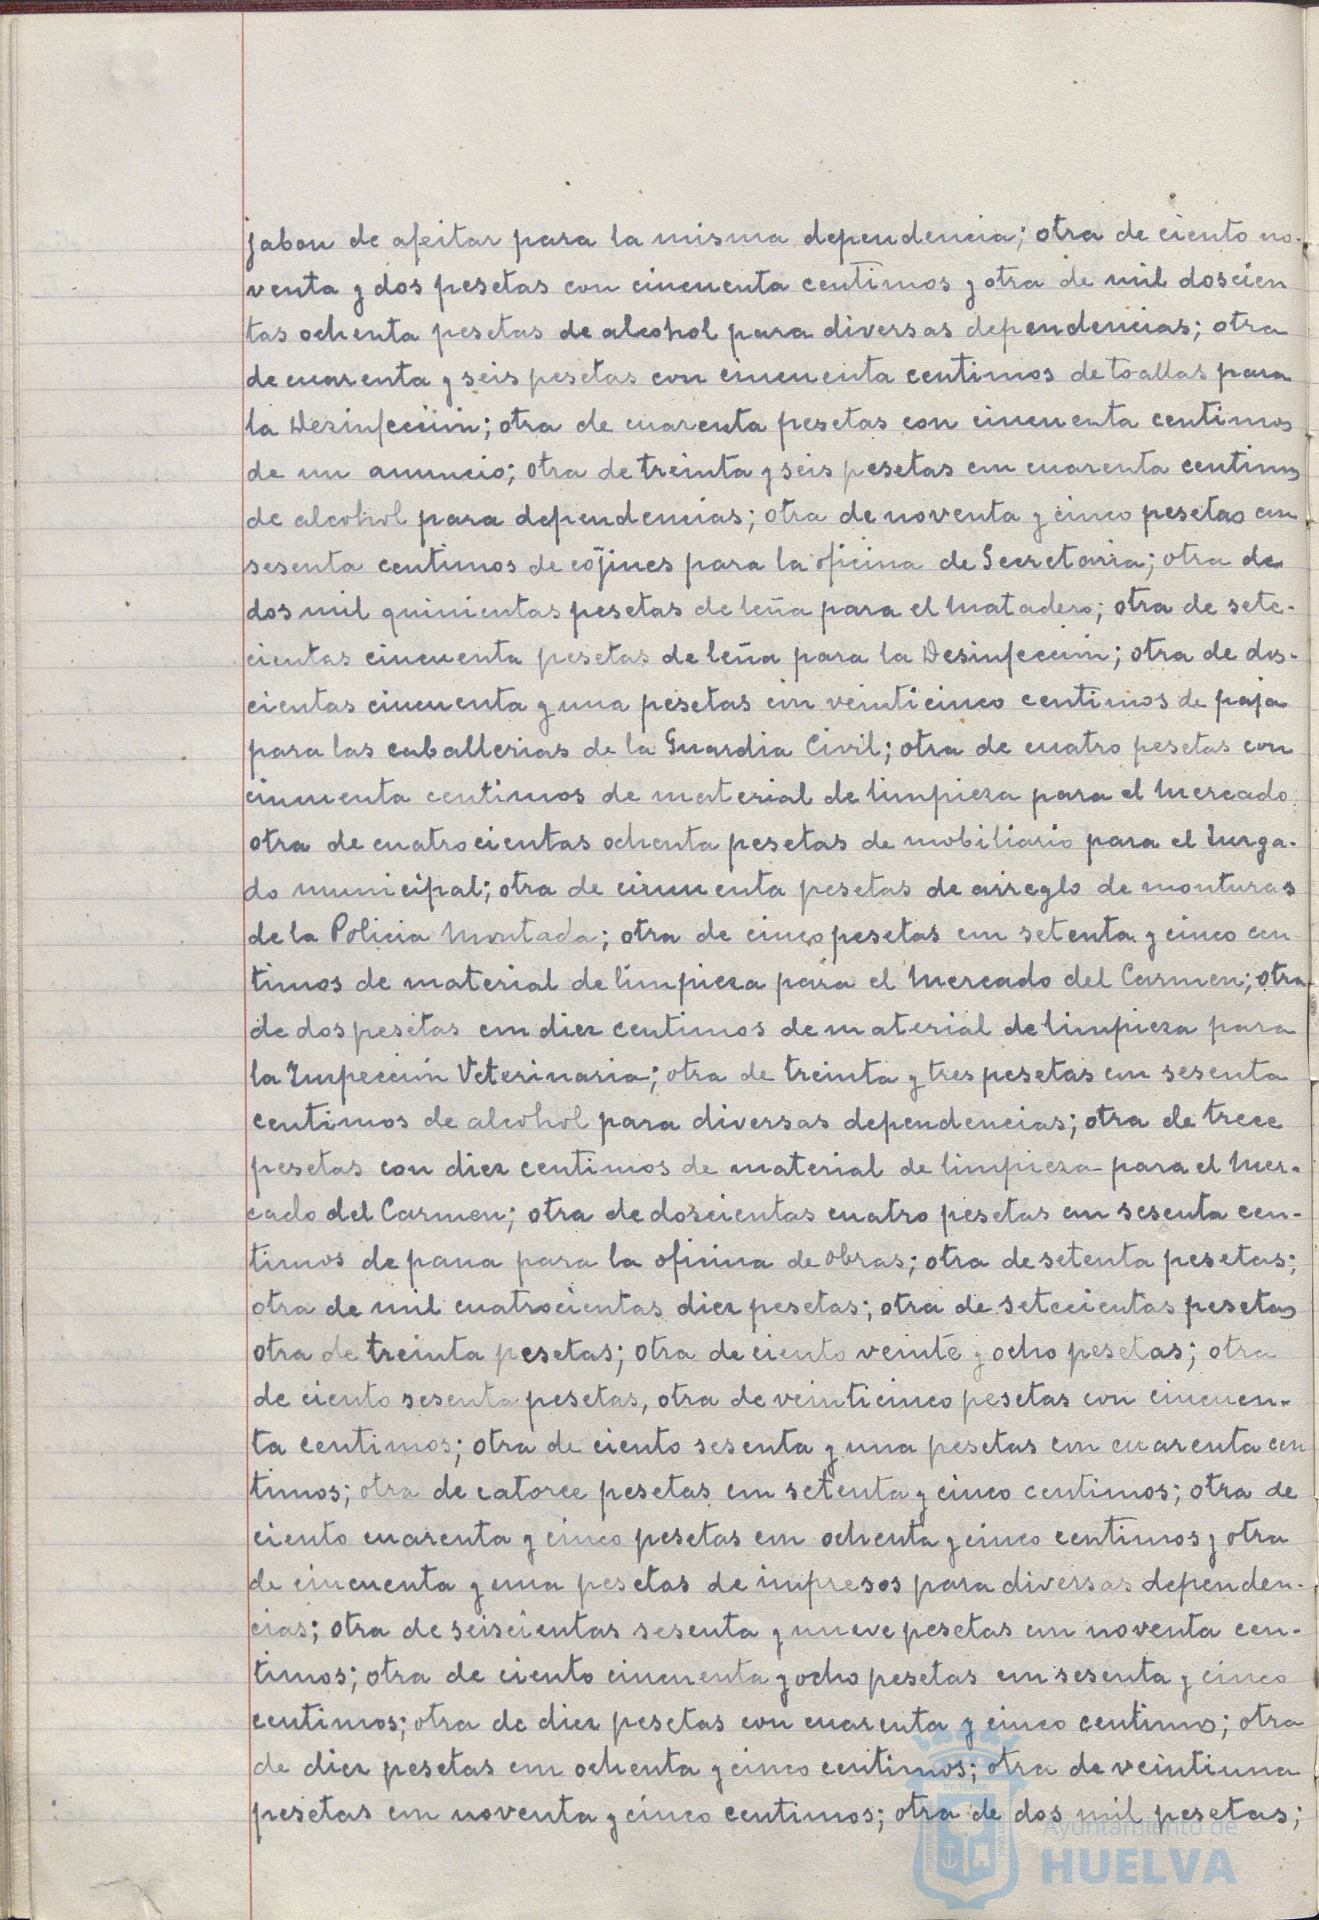 jabon de afeitar para la misma dependencia; otra de ciento no-
venta y dos pesetas con cincuenta centimos y otra de mil doscien
tas ochenta pesetas de alcohol para diversas dependencias; otra
de cuarenta y seis pesetas con cincuenta centimos de toallas para
la Desinfección; otra de cuarenta pesetas con cincuenta centimos
de un anuncio; otra de treinta y seis pesetas con cuarenta centimos
de alcohol para dependencias; otra de noventa y cinco pesetas con
sesenta centimos de cojines para la oficina de Secretaria; otra de
dos mil quinientas pesetas de leña para el Matadero; otra de sete-
cientas cincuenta pesetas de leña para la Desinfección; otra de dos-
cientas cincuenta y una pesetas con veinticinco centimos de paja
para las caballerias de la Guardia Civil; otra de cuatro pesetas con
cincuenta centimos de material de limpieza para el Mercado
otra de cuatrocientas ochenta pesetas de mobiliario para el Juzga-
do municipal; otra de cincuenta pesetas de arreglo de monturas
de la Policia Montada; otra de cinco pesetas con setenta y cinco cen
timos de material de limpieza para el Mercado del Carmen; otra
de dos pesetas con diez centimos de material de limpieza para
la Inspección Veterinaria; otra de treinta y tres pesetas con sesenta
centimos de alcohol para diversas dependencias; otra de trece
pesetas con diez centimos de material de limpieza para el Mer-
cado del Carmen; otra de doscientas cuatro pesetas con sesenta cen-
timos de pana para la oficina de obras; otra de setenta pesetas;
otra de mil cuatrocientas diez pesetas; otra de setecientas pesetas
otra de treinta pesetas; otra de ciento veinte y ocho pesetas; otra
de ciento sesenta pesetas, otra de veinticinco pesetas con cincuen-
ta centimos; otra de ciento sesenta y una pesetas con cuarenta cen
timos; otra de catorce pesetas con setenta y cinco centimos; otra de
ciento cuarenta y cinco pesetas con ochenta y cinco centimos y otra
de cincuenta y una pesetas de impresos para diversas dependen-
cias; otra de seiscientas sesenta y nueve pesetas con noventa cen-
timos; otra de ciento cincuenta y ocho pesetas con sesenta y cinco
centimos; otra de diez pesetas con cuarenta y cinco centimos; otra
de diez pesetas con ochenta y cinco centimos; otra de veintiuna
pesetas con noventa y cinco centimos; otra de dos mil pesetas;
Ayuntamiento de
HUELVA